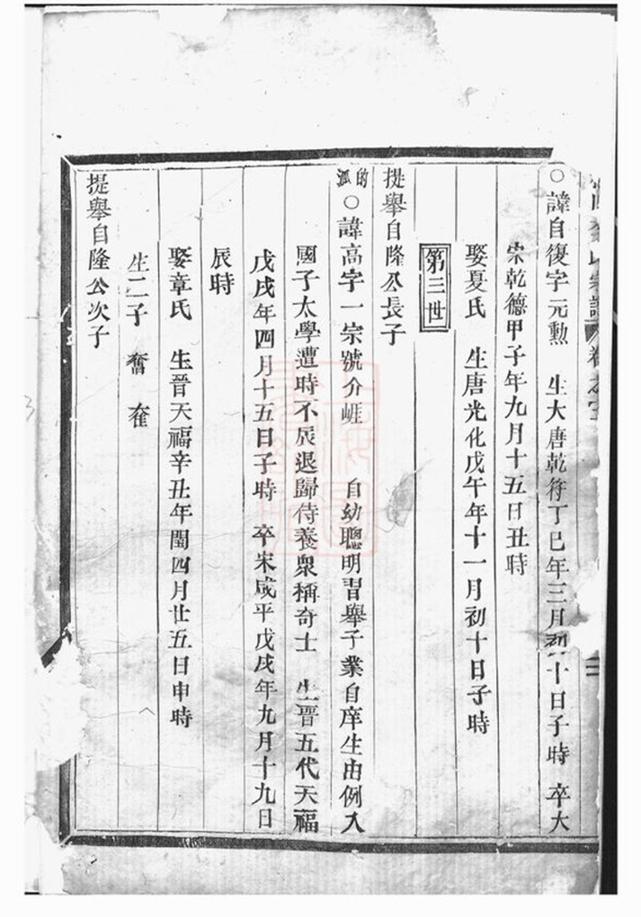 ○諱自復字元勲 生大唐乾符丁巳年三月初十日子時 卒大
宋乾德甲子年九月十五日丑時
娶夏氏 生唐光化戊午年十一月初十日子時
第三世
提舉自隆公長子
的派○諱高字一宗號介崕 自幼聰明習舉子業自庠生由例入
國子太學遭時不辰退歸侍養衆稱奇士 生晋五代天福
戊戌年四月十五日子時 卒宋咸平戊戌年九月十九日
辰時
娶章氏 生晋天福辛丑年閏四月廿五日申時
生二子 奮 奎
提舉自隆公次子